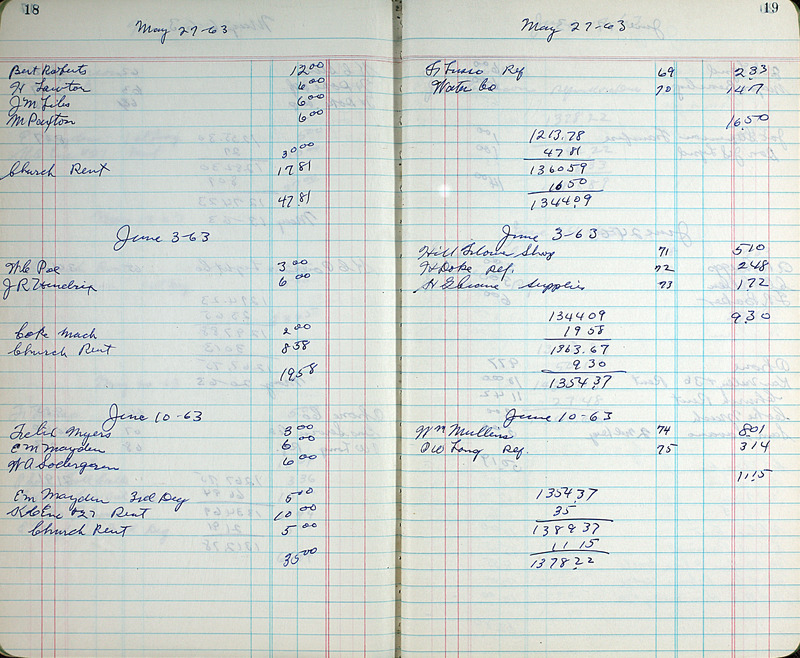 18
May 27-63
Bert Roberts 12.00
H Lawton 6.00
J M Liles 6.00
M Paxton 6.00
30.00
Church Rent 17 81
47.81
June 3-63
W C Poe 3.00
J R Hendrix 6.00
Coke Mach 2.00
Church Rent 8 58
19.58
June 10-63
Felix Myers 3.00
E M Mayden 6.00
W A Sodergren 6.00
E M Mayden 3rd Deg 5.00
#27 Rent 10.00
Church Rent 5.00
35.00
19
May 27-63
Fusco Ref 69 2 33
Water Co 70 14 17
16 50
1213.78
47 81
1360 59
16 50
1344 09
June 3-63
Hill Flower Shop 71 5 10
H Doke Ref. 72 2 48
Supplies 73 1 72
9 30
1344 09
19 58
1363.67
9 30
1354 37
June 10-63
Wm Mullins 74 8 01
O W Long Ref. 75 3 14
11 15
1354 37
35
1389 37
11 15
1378 22